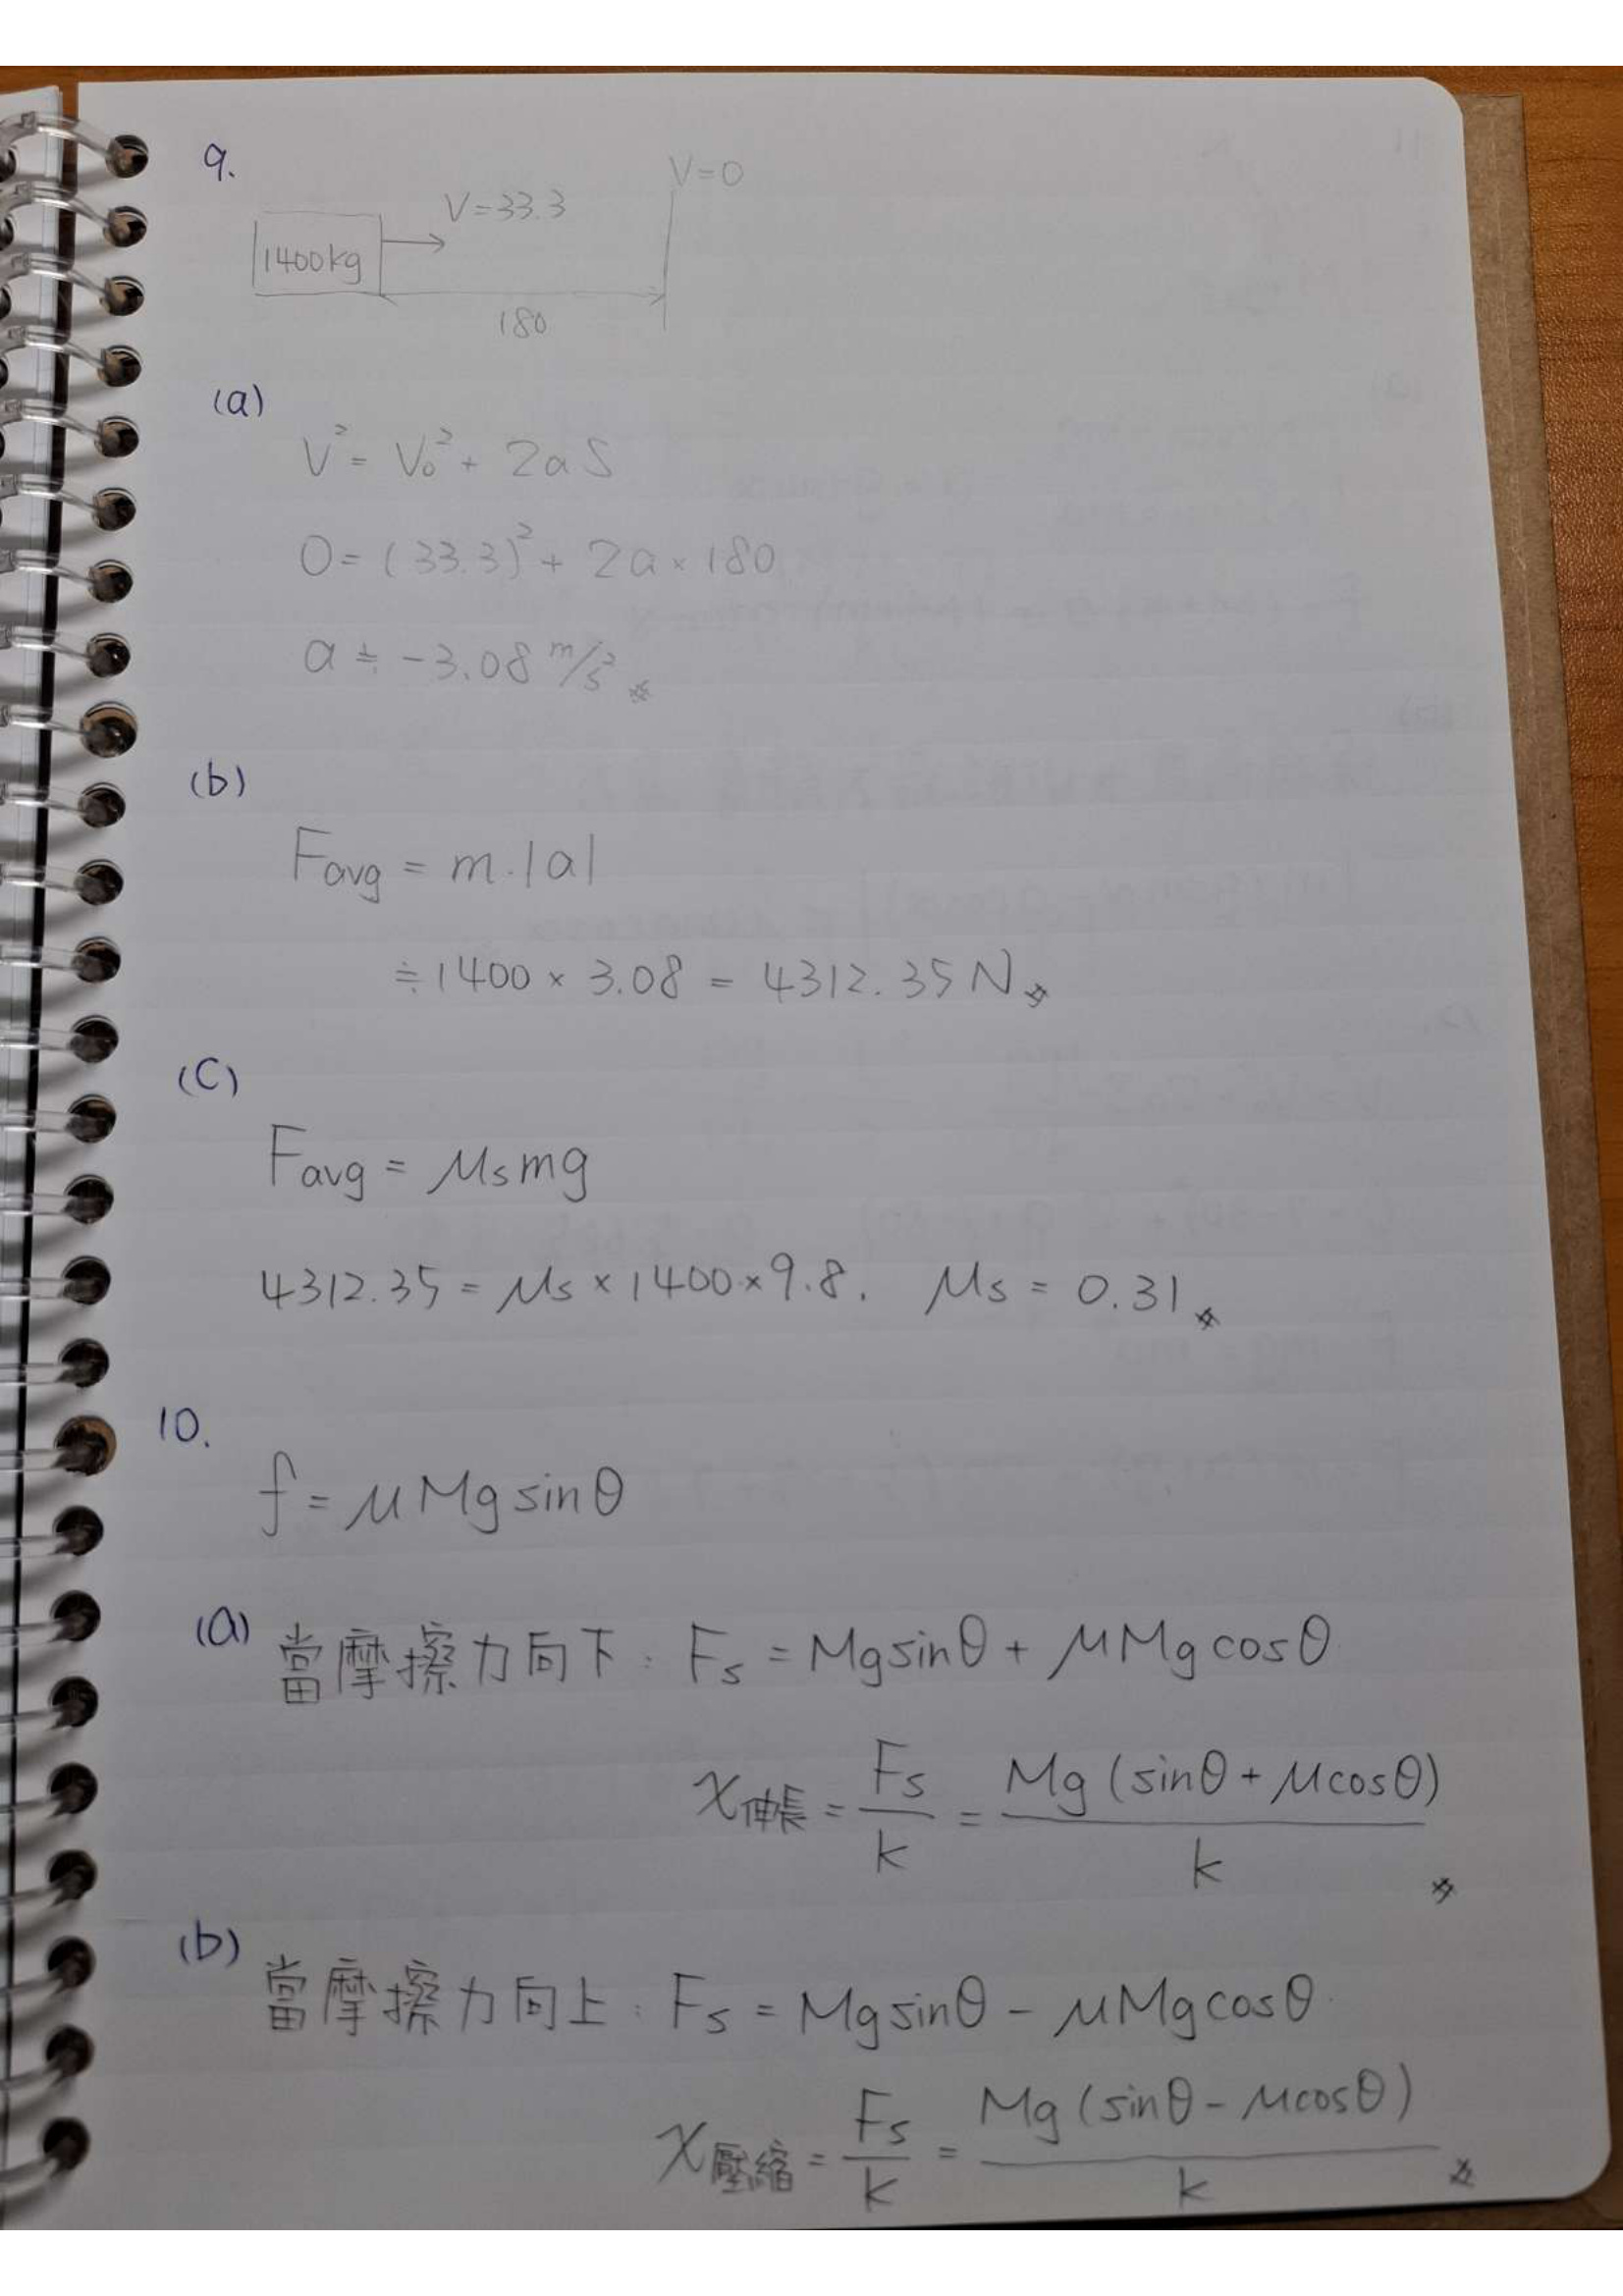 9.
V=0
V=33.3
1400kg
180
(a)
V² = V₀² + 2aS
0 = (33.3)² + 2a × 180
a ≒ -3.08 m/s²
(b)
Favg = m·|a|
≒ 1400 × 3.08 = 4312.35 N
(C)
Favg = μsmg
4312.35 = μs × 1400 × 9.8. μs = 0.31
10.
f = μMg sinθ
(a) 當摩擦力向下: Fs = Mgsinθ + μMg cosθ
χ伸長 = Fs/k = Mg (sinθ + μcosθ)/k
(b) 當摩擦力向上: Fs = Mgsinθ - μMgcosθ
χ壓縮 = Fs/k = Mg (sinθ - μcosθ)/k